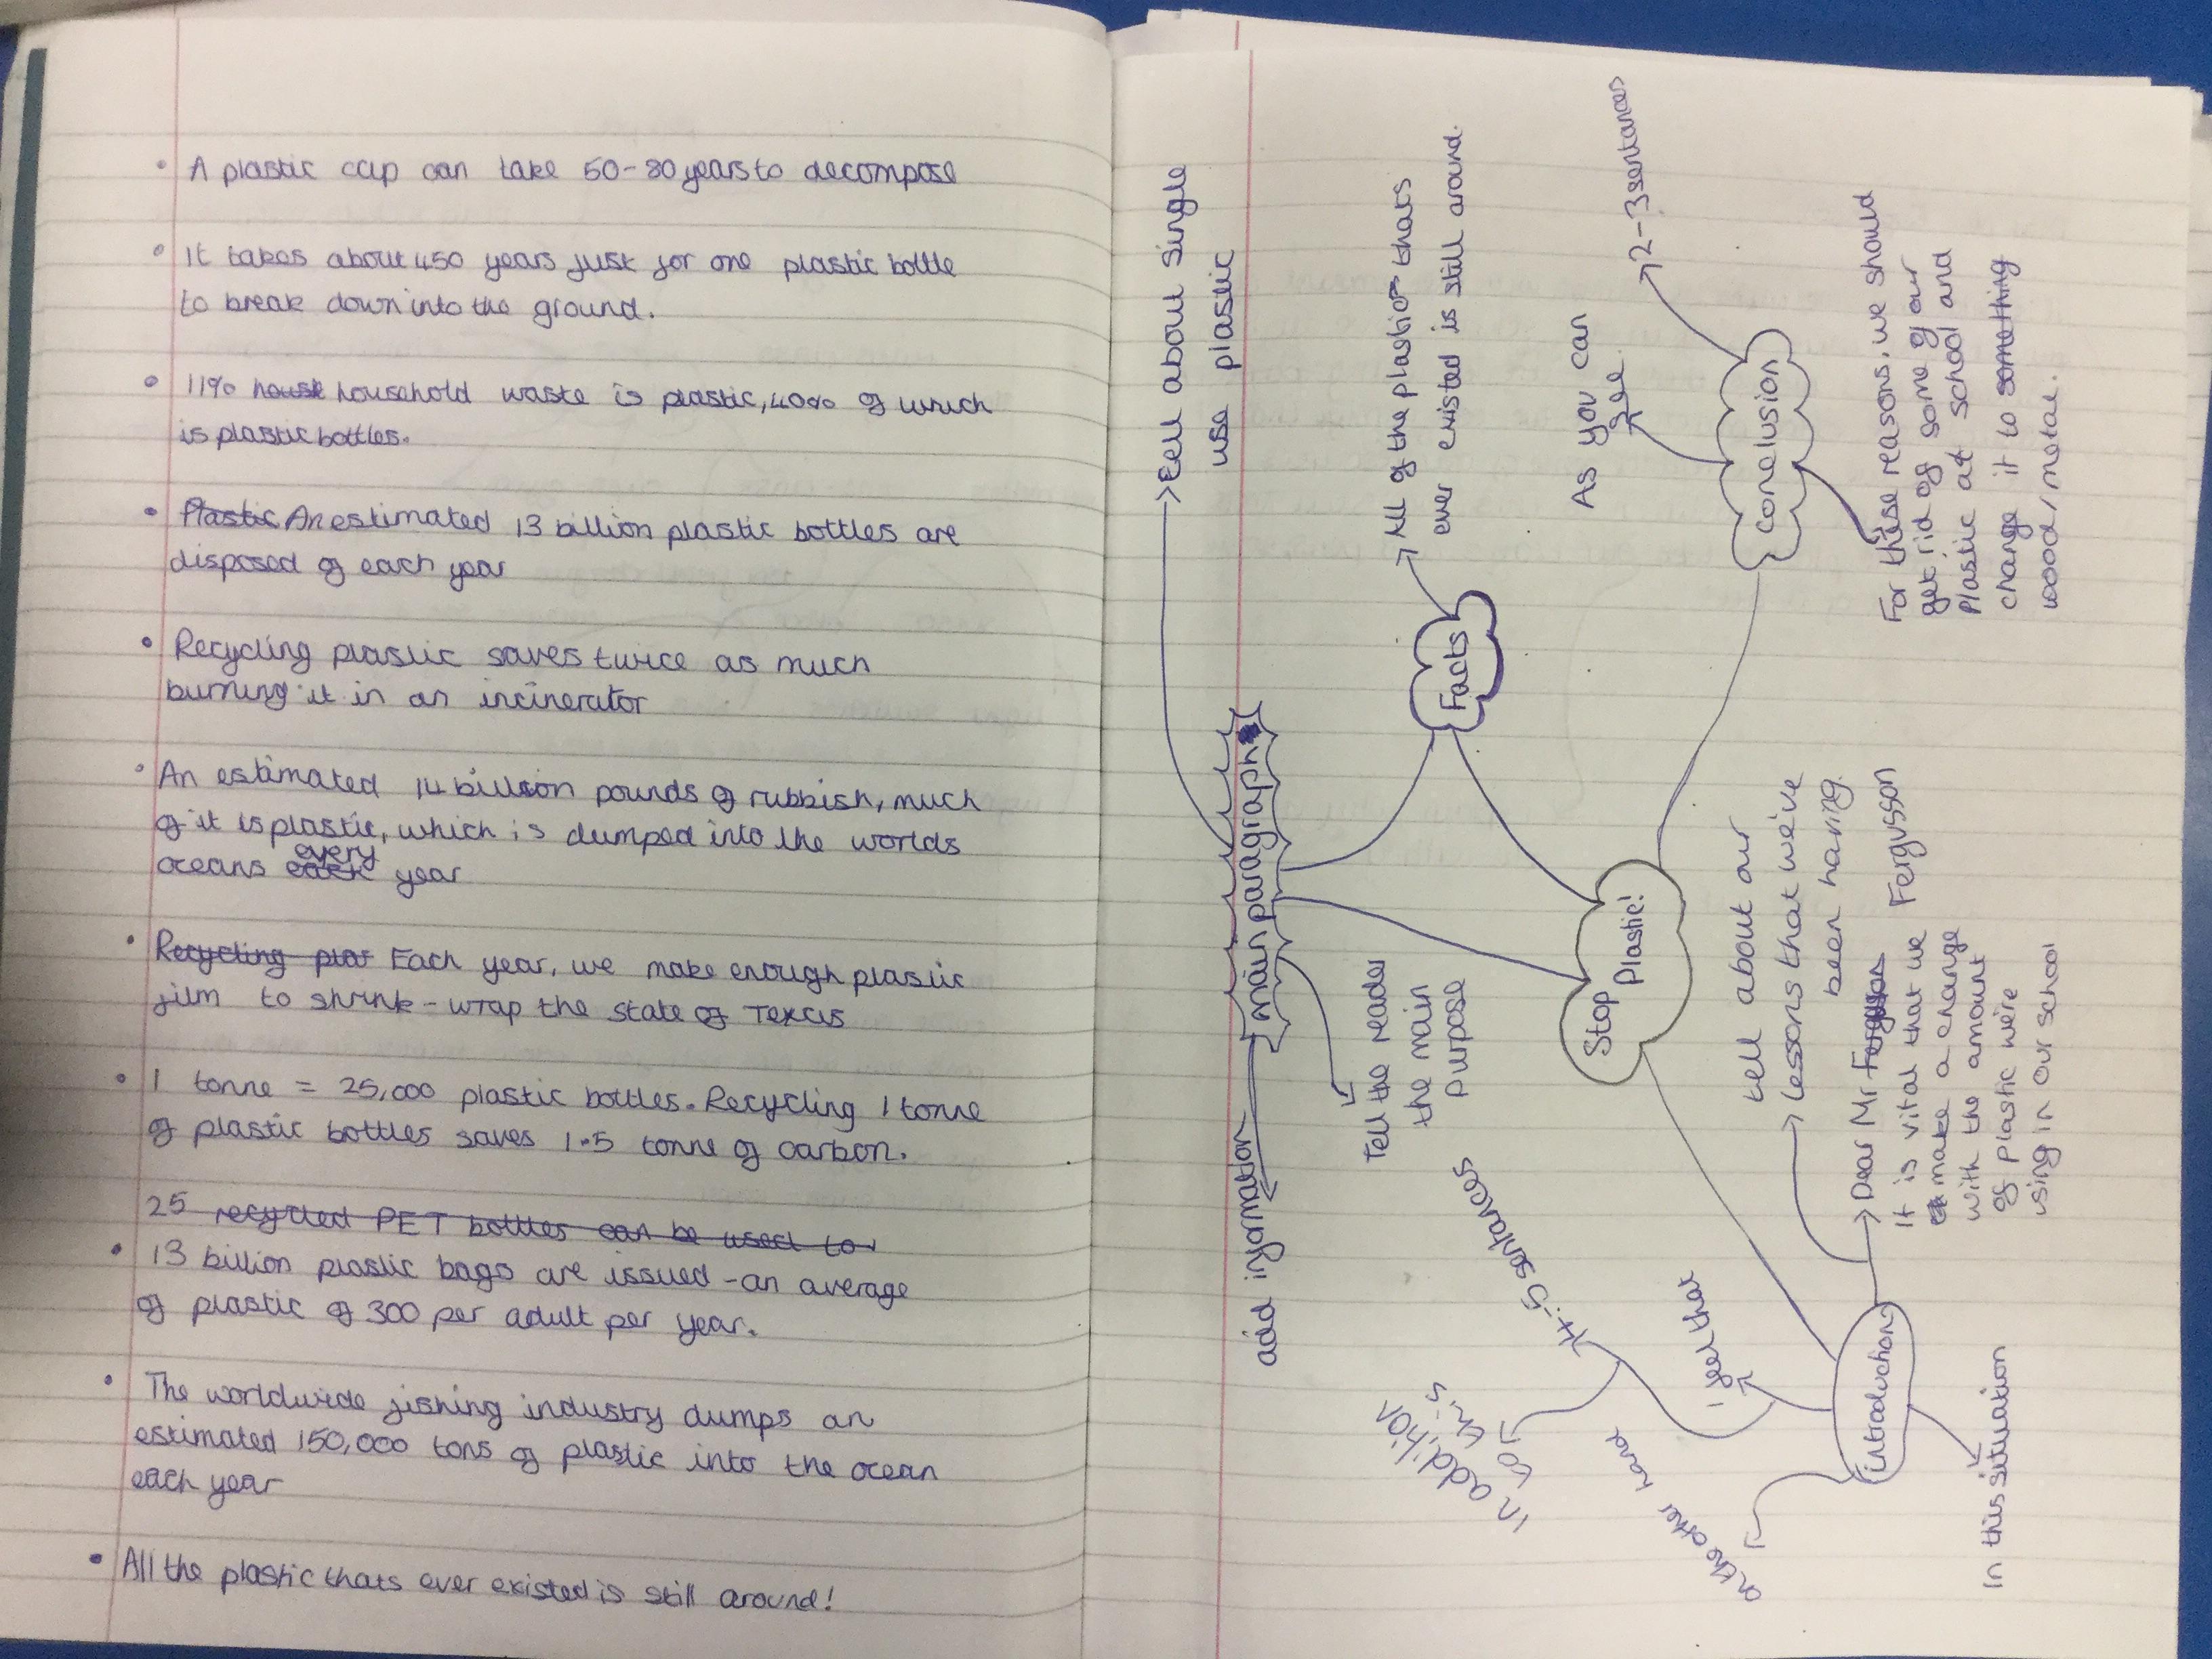 • A plastic cup can take 50-80 years to decompose
• It takes about 450 years just for one plastic bottle
to break down into the ground.
• 11% house household waste is plastic, 40% of which
is plastic bottles.
• Plastic An estimated 13 billion plastic bottles are
disposed of each year
• Recycling plastic saves twice as much
burning it in an incinerator
• An estimated 14 billion pounds of rubbish, much
of it is plastic, which is dumped into the worlds
every
oceans each year
• Recycling plas Each year, we make enough plastic
film to shrink-wrap the state of Texas
• 1 tonne = 25,000 plastic bottles. Recycling 1 tonne
of plastic bottles saves 1.5 tonne of carbon.
25 recycled PET bottles can be used to
• 13 billion plastic bags are issued - an average
of plastic of 300 per adult per year.
• The worldwide fishing industry dumps an
estimated 150,000 tons of plastic into the ocean
each year
• All the plastic thats ever existed is still around!
tell about single
use plastic
main paragraph
add information
Tell the reader
the main
purpose
Facts
All of the plastic thats
ever existed is still around.
Stop
Plastic!
conclusion
As you can
see
2-3 sentances
For these reasons, we should
get rid of some of our
Plastic at school and
change it to something
wood/metal.
introduction
tell about our
lessons that we've
been having.
Dear Mr Fergusson
It is vital that we
make a change
with the amount
of plastic we're
using in our school
I feel that
4-5 sentances
In addition
to
on the other hand
In this situation